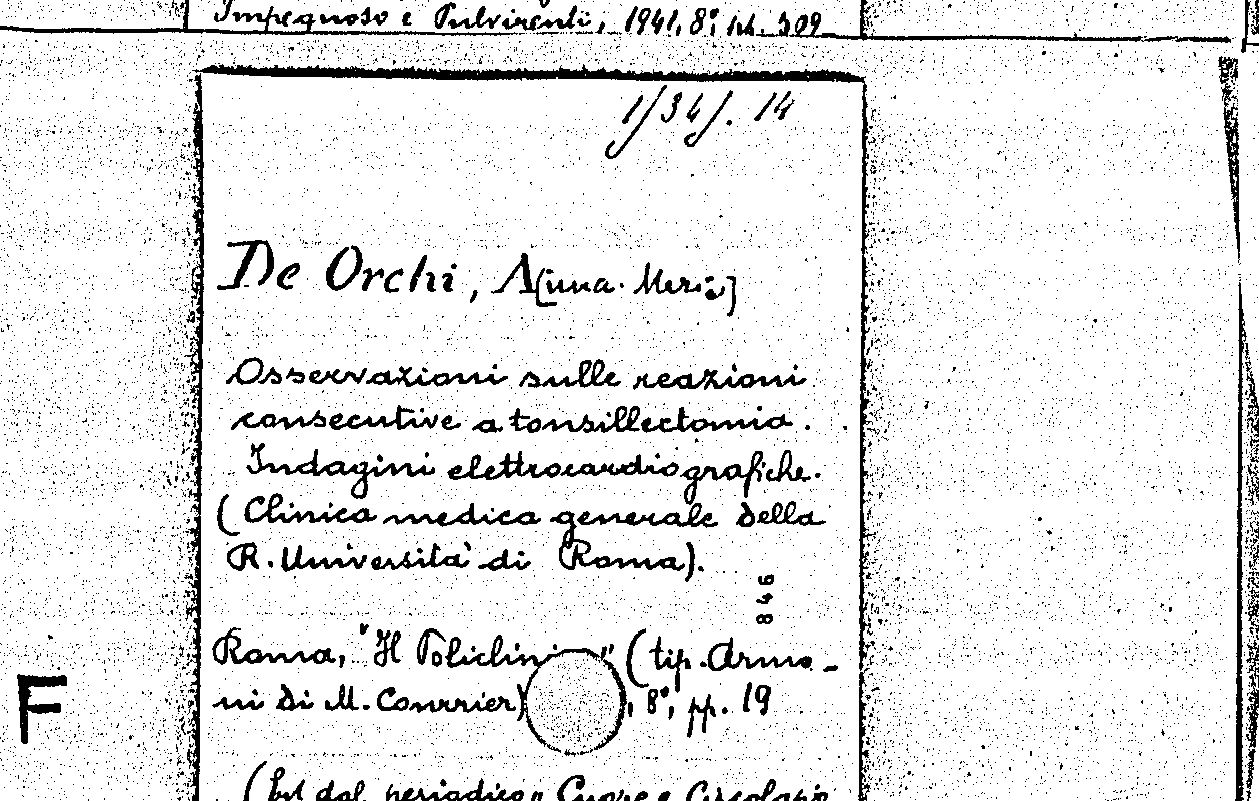 Impegnoso e Pulvirenti, 1941, 8°, pp. 309
1/34/. 14
De Orchi, A[nna. Maria]
Osservazioni sulle reazioni
consecutive a tonsillectomia.
Indagini elettrocardiografiche.
(Clinica medica generale della
R. Università di Roma).
846
Roma, "Il Policlini " (tip. Arma-
ni di M. Courrier) , 8°, pp. 19
F
dal periodico " Cuore e Circolazio